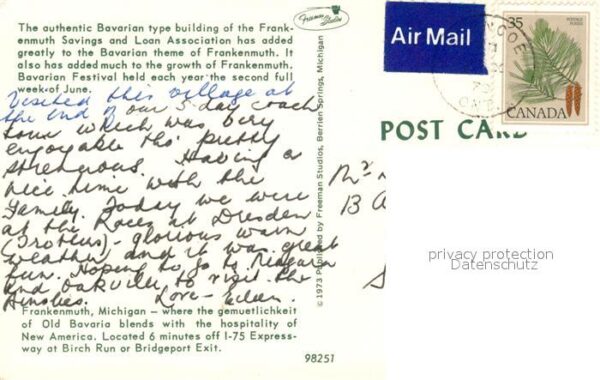 The authentic Bavarian type building of the Frank-
enmuth Savings and Loan Association has added
greatly to the Bavarian theme of Frankenmuth. It
also has added much to the growth of Frankenmuth.
Bavarian Festival held each year the second full
week of June.
Visited this village at
the end of our 5 day coach
tour which was very
enjoyable tho' pretty
strenuous. Having a
nice time with the
family. Today we were
at the Races at Dresden
(Trotters) - glorious warm
weather and it was great
fun. Hoping to go to Niagara
and Oakville to visit the
Ainslies. Love - Eileen.
Frankenmuth, Michigan – where the gemuetlichkeit
of Old Bavaria blends with the hospitality of
New America. Located 6 minutes off I-75 Express-
way at Birch Run or Bridgeport Exit.
98251
Freeman Studios
© 1973 Published by Freeman Studios, Berrien Springs, Michigan
Air Mail
35
POSTAGE
POSTES
CANADA
POST CARD
Mr
B
S
privacy protection
Datenschutz